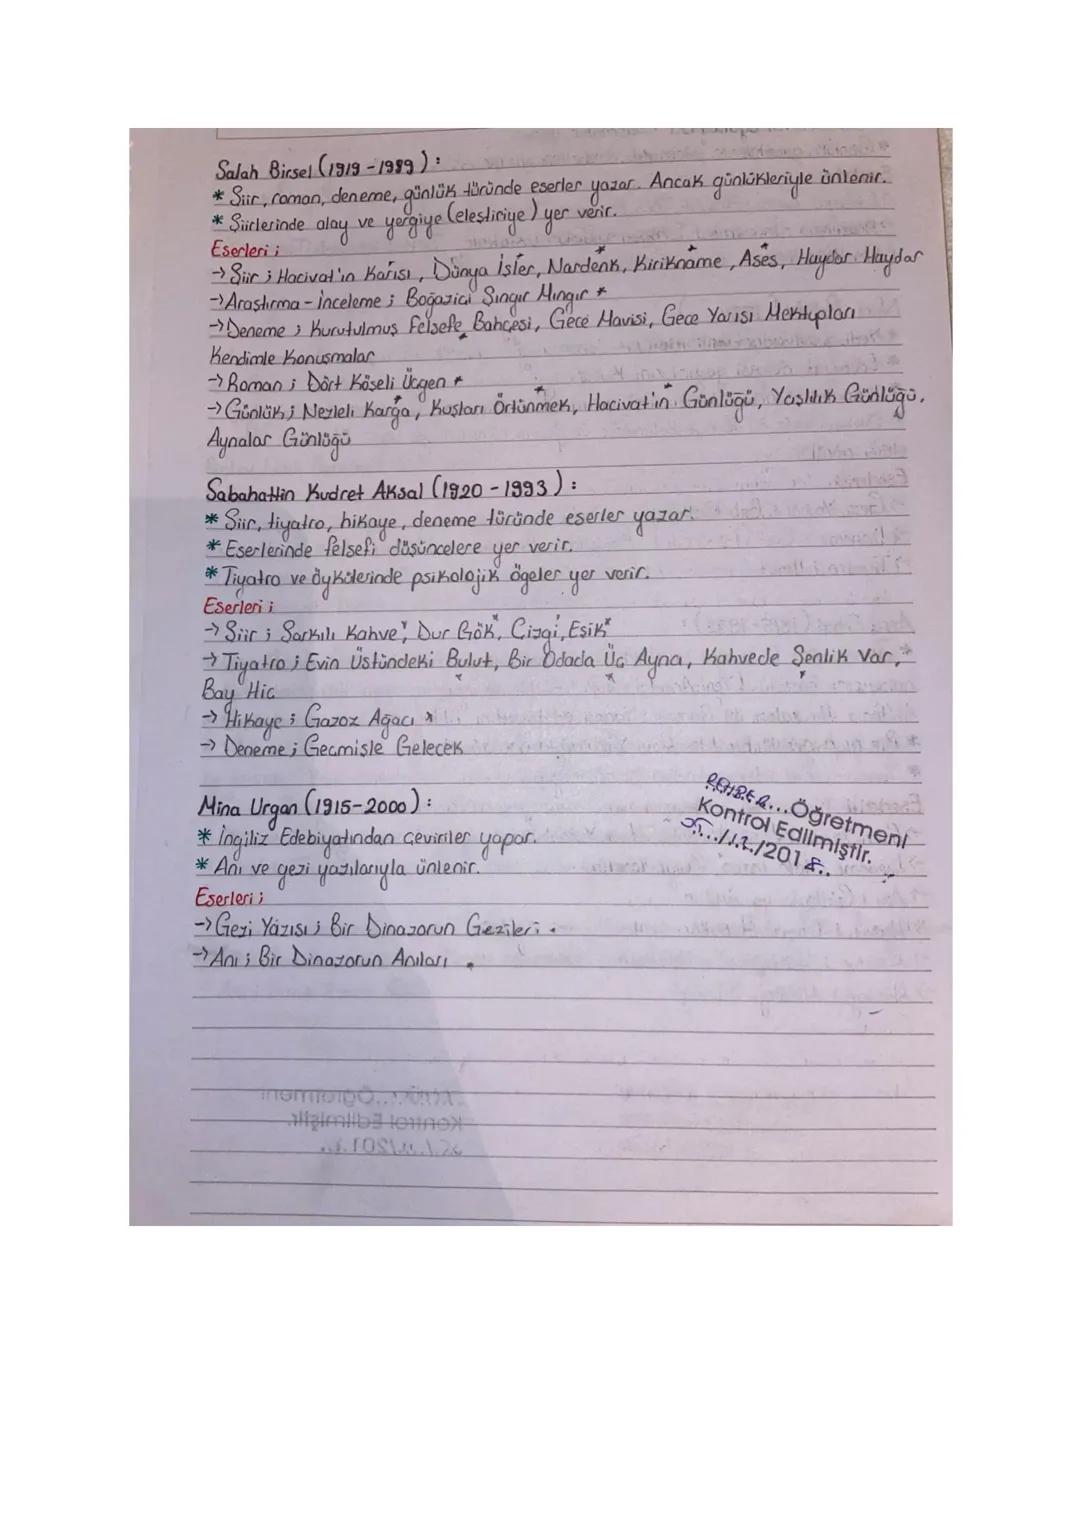 Salah Birsel (1919-1999) :
* Şiir, roman, deneme, günlük türünde eserler yazar. Ancak günlükleriyle ünlenir.
* Şiirlerinde alay ve yergiye (eleştiriye) yer verir.
Eserleri ;
→ Şiir ; Hacivat'ın Karısı, Dünya İşler, Nardenk, Kirikname, Ases, Haydar Haydar
→ Araştırma - İnceleme ; Boğaziçi Şıngır Mıngır *
→ Deneme ; Kurutulmuş Felsefe Bahçesi, Gece Mavisi, Gece Yarısı Mektupları
Kendimle Konuşmalar
→ Roman ; Dört Köşeli Üçgen *
→ Günlük ; Nezleli Karga, Kuşları Örtünmek, Hacivat'ın Günlüğü, Yaşlılık Günlüğü,
Aynalar Günlüğü
Sabahattin Kudret Aksal (1920-1993) :
* Şiir, tiyatro, hikaye, deneme türünde eserler yazar.
* Eserlerinde felsefi düşüncelere yer verir.
* Tiyatro ve öykülerinde psikolojik ögeler yer verir.
Eserleri ;
→ Şiir ; Şarkılı Kahve, Dur Gök, Çizgi, Eşik
→ Tiyatro ; Evin Üstündeki Bulut, Bir Odada Üç Ayna, Kahvede Şenlik Var,
Bay Hiç
→ Hikaye ; Gazoz Ağacı *
→ Deneme ; Geçmişle Gelecek
Mina Urgan (1915-2000) :
* İngiliz Edebiyatından çeviriler yapar.
* Anı ve gezi yazılarıyla ünlenir.
Eserleri ;
→ Gezi Yazısı ; Bir Dinazorun Gezileri .
→ Anı ; Bir Dinazorun Anıları .
REHBER...Öğretmeni
Kontrol Edilmiştir.
/12/2018..